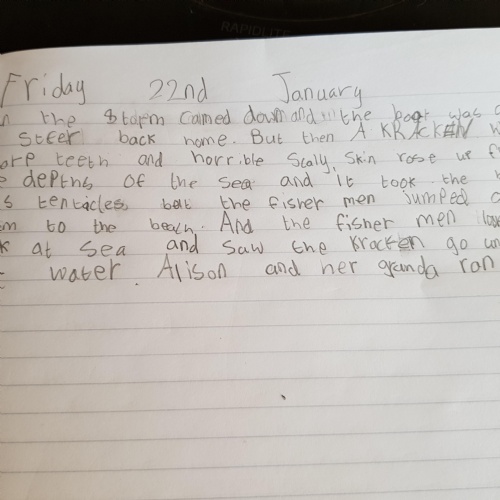 RAPIDLITE
Friday 22nd January
the storm camed down and the boat was
steer back home. But then A KRACKEN
teeth and horrible scaly, skin rose up
depths of the sea and it took the
tentacles but the fisher men jumped
to the beach. And the fisher men
at sea and saw the kracken go
water. Alison and her granda ran